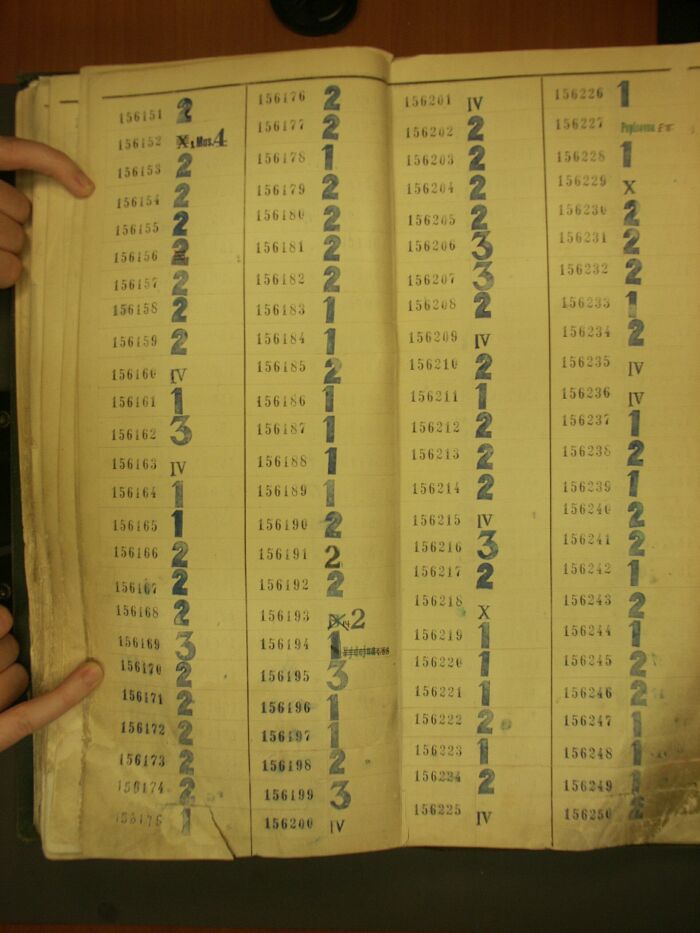 156151 2
156152 X, Mus. 4
156153 2
156154 2
156155 2
156156 2
156157 2
156158 2
156159 2
156160 IV
156161 1
156162 3
156163 IV
156164 1
156165 1
156166 2
156167 2
156168 2
156169 3
156170 2
156171 2
156172 2
156173 2
156174 2
156175 1
156176 2
156177 2
156178 1
156179 2
156180 2
156181 2
156182 2
156183 1
156184 1
156185 2
156186 1
156187 1
156188 1
156189 1
156190 2
156191 2
156192 2
156193 2
156194 1
156195 3
156196 1
156197 1
156198 2
156199 3
156200 IV
156201 IV
156202 2
156203 2
156204 2
156205 2
156206 3
156207 3
156208 2
156209 IV
156210 2
156211 1
156212 2
156213 2
156214 2
156215 IV
156216 3
156217 2
156218 X
156219 1
156220 1
156221 1
156222 2
156223 1
156224 2
156225 IV
156226 1
156227
156228 1
156229 X
156230 2
156231 2
156232 2
156233 1
156234 2
156235 IV
156236 IV
156237 1
156238 2
156239 1
156240 2
156241 2
156242 1
156243 2
156244 1
156245 2
156246 2
156247 1
156248 1
156249 1
156250 2